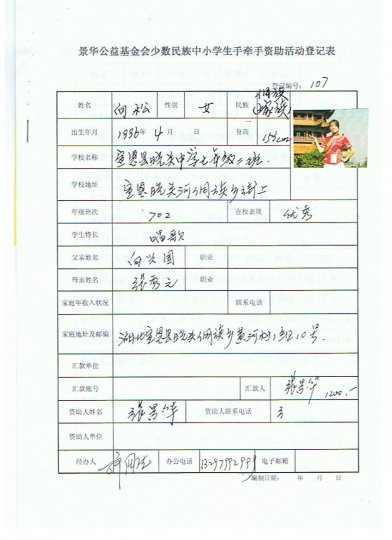 景华公益基金会少数民族中小学生手牵手资助活动登记表
登记编号: 107
姓名 向松 性别 女 民族 侗族
出生年月 1996年4月 日 身高 158cm
学校名称 宣恩县晓关中学七年级二班
学校地址 宣恩晓关侗族乡街上
年级班次 702 在校表现 优秀
学生特长 唱歌
父亲姓名 向兴国 职业
母亲姓名 张秀元 职业
家庭年收入状况 联系电话
家庭地址及邮编 湖北宣恩县晓关侗族乡黄河村 10号.
汇款单位
汇款账号 汇款人 张景华 1200.-
资助人姓名 张景华 资助人联系电话
资助人单位
经办人 办公电话 电子邮箱
编制日期: 年 月 日